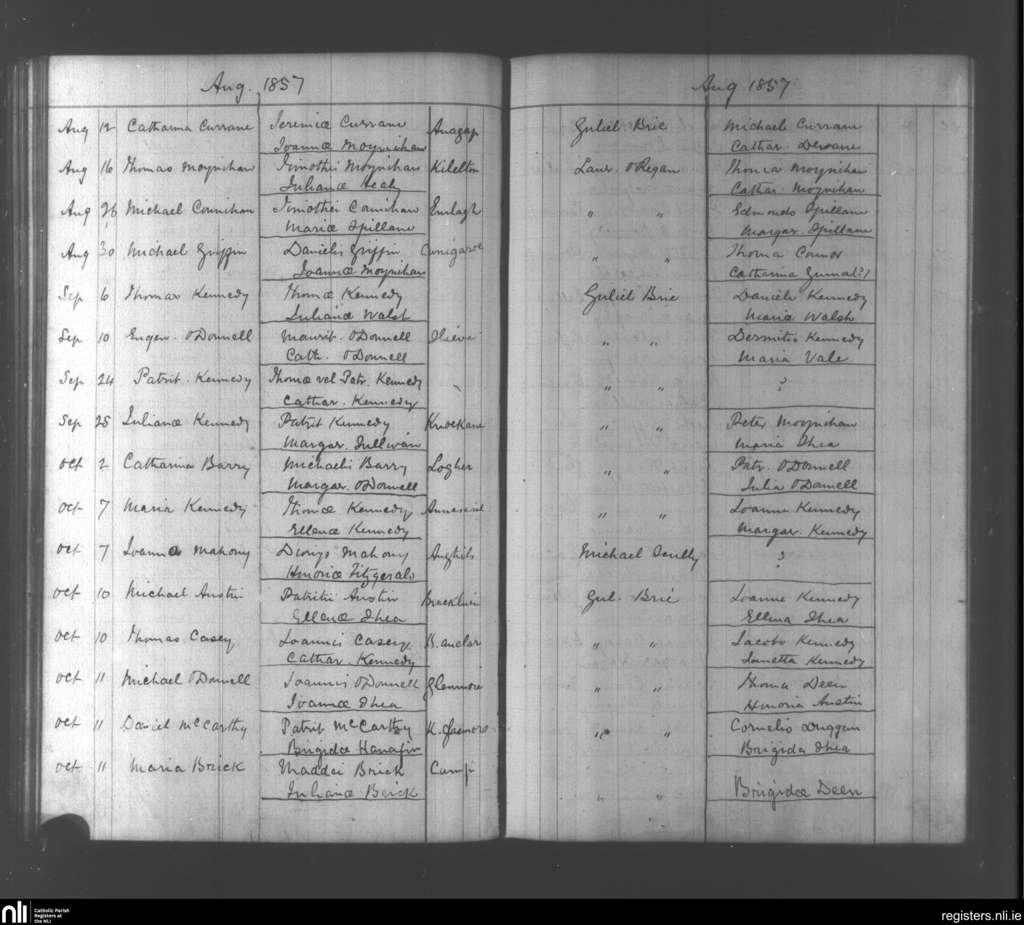 Aug. 1857
Aug 12 Catharina Currane Jeremiæ Currane Anagap
Joannæ Moynihan
Aug 16 Thomas Moynihan Timothei Moynihan Kilelton
Julianæ Healy
Aug 26 Michael Counihan Timothei Counihan Emlagh
Mariæ Spillane
Aug 30 Michael Griffin Danielis Griffin
Joannæ Moynihan
Sep 6 Thomas Kennedy Thomæ Kennedy
Julianæ Walsh
Sep 10 Eugen. O'Donnell Maurit. O'Donnell Slieve
Cath. O'Donnell
Sep 24 Patrit. Kennedy Thomæ vel Patr. Kennedy
Cathar. Kennedy
Sep 25 Julianæ Kennedy Patrit Kennedy Knockane
Margar. Sullivan
Oct 2 Catharina Barry Michaelis Barry Logher
Margar. O'Donnell
Oct 7 Maria Kennedy Thomæ Kennedy
Ellenæ Kennedy
Oct 7 Joanna Mahony Dionys Mahony Aughils
Honoriæ Fitzgerald
Oct 10 Michael Austin Patritii Austin
Ellenæ Shea
Oct 10 Thomas Casey Joannis Casey
Cathar. Kennedy
Oct 11 Michael O'Donnell Joannis O'Donnell Glenmore
Joannæ Shea
Oct 11 Daniel McCarthy Patrit McCarthy
Brigidæ Hanafin
Oct 11 Maria Brick Maddei Brick Camp
Julianæ Brick
Aug 1857
Guliel Brie Michael Currane
Cathar.
Laur. O'Regan Thoma Moynihan
Cathar Moynihan
" " Edmondo Spillane
Margar. Spillane
" " Thoma Connor
Catharina
Guliel Brie Daniele Kennedy
Maria Walsh
" " Dermitio Kennedy
Maria Vale
" " ?
" " Peter Moynihan
Maria Shea
" " Patr. O'Donnell
Julia O'Donnell
" " Joanne Kennedy
Margar. Kennedy
Michael Scully ?
Gul. Brie Joanne Kennedy
Ellena Shea
" " Jacobo Kennedy
Kennedy
" " Thoma Deen
Honoria Austin
" " Cornelio Duggan
Brigida Shea
" " Brigidæ Deen
nli
Catholic Parish
Registers at
the NLI
registers.nli.ie